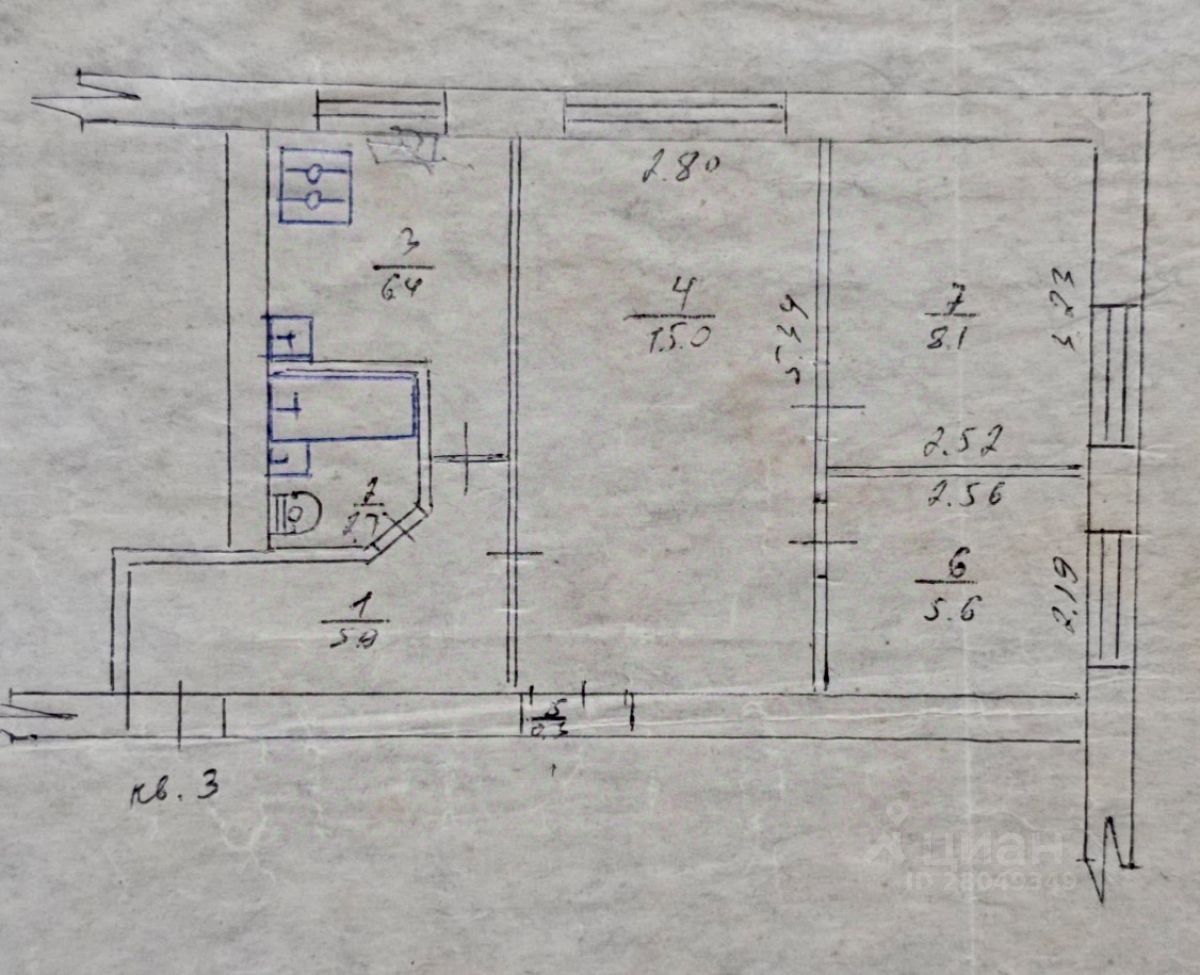 2.80
3
6.4
4
15.0
5.34
7
8.1
3.23
2.52
2.56
2
2.7
6
5.6
2.19
1
5
0.3
кв. 3
циан
ID 28049349